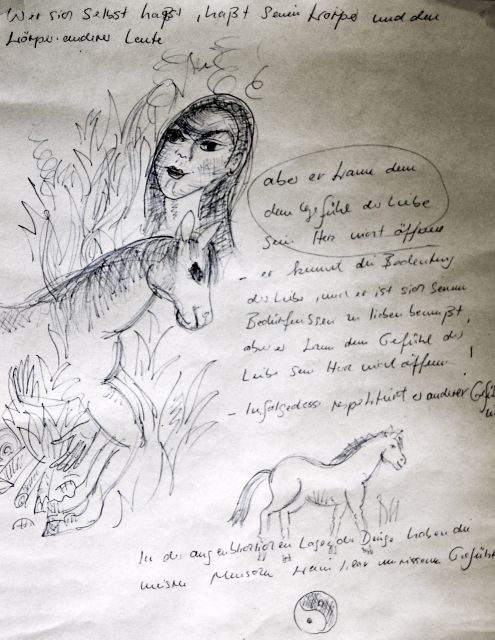 Wer sich selbst haßt, haßt seinen Körper und den
Körper anderer Leute
aber er kann dem
dem Gefühl der Liebe
sein Herz nicht öffnen
- er kennt die Bedeutung
der Liebe, und er ist sich seinen
Bedürfnissen zu lieben bewußt,
aber er kann dem Gefühl der
Liebe sein Herz nicht öffnen!
- Infolgedessen respektiert er anderer
In der augenblicklichen Lage der Dinge haben die
meisten Menschen kein